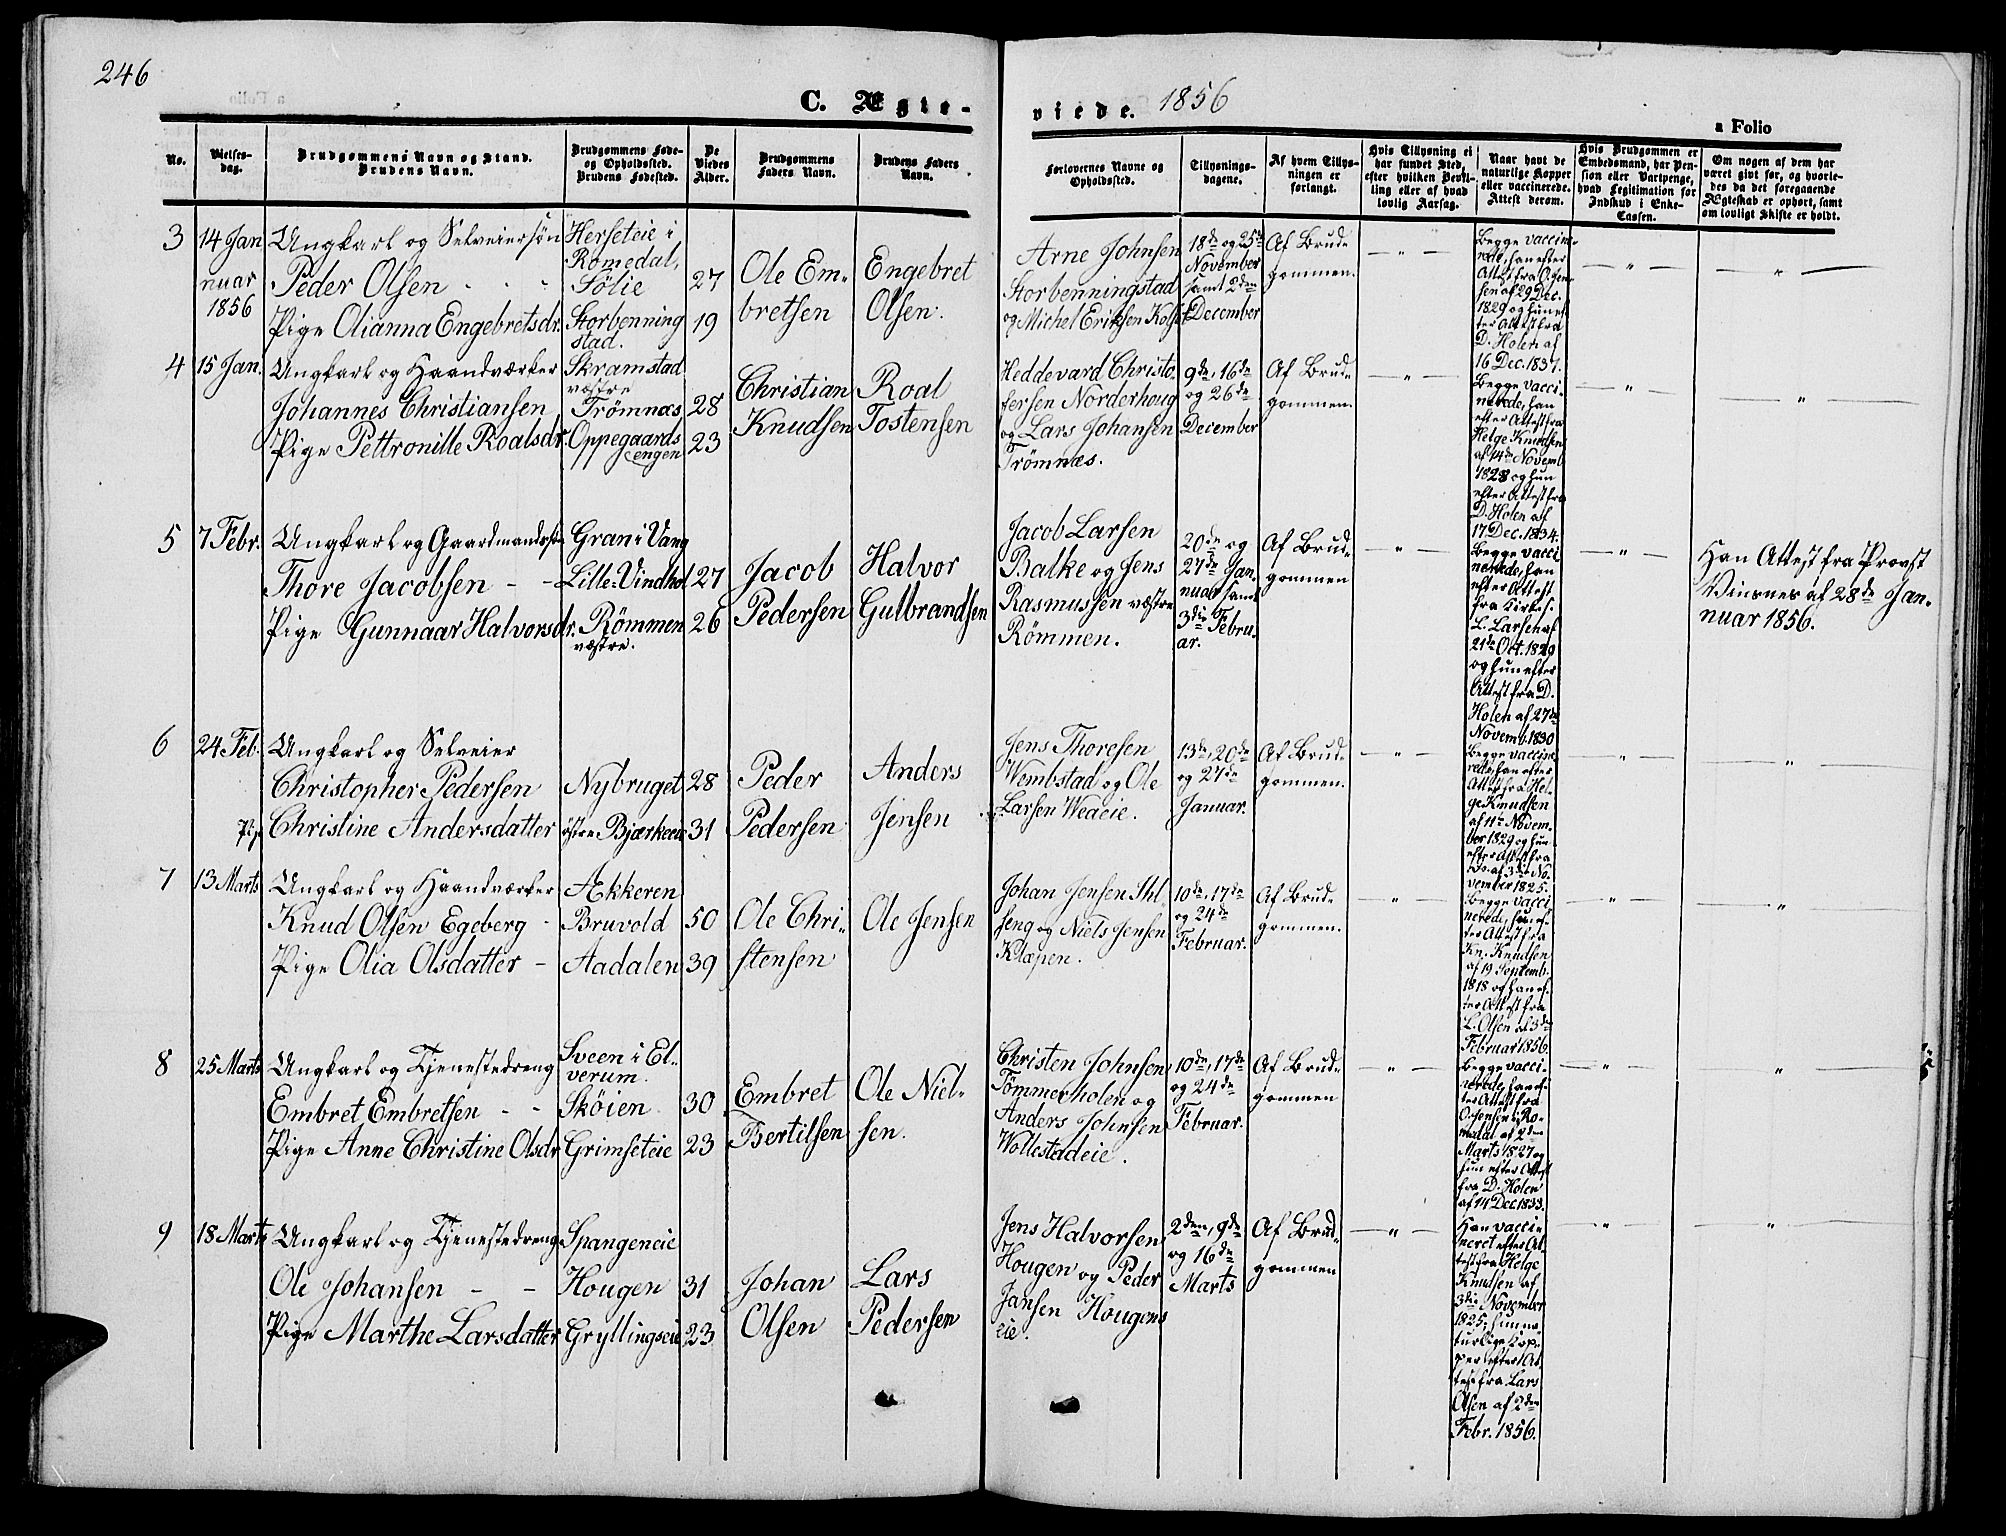 246
C. Ægte-
viede. 1856
a Folio
No.
Vielses-
dag.
Brudgommens Navn og Stand.
Brudens Navn.
Brudgommens Føde-
og Opholdssted.
Brudens Fødested.
De
Viedes
Alder.
Brudgommens
Faders Navn.
Brudens Faders
Navn.
Forlovernes Navne og
Opholdssted.
Tillysnings-
dagene.
Af hvem Tillys-
ningen er
forlangt.
Hvis Tillysning ei
har fundet Sted,
efter hvilken Bevil-
ling eller af hvad
lovlig Aarsag.
Naar havt de
naturlige Kopper
eller vaccinerede.
Attest derom.
Hvis Brudgommen er
Embedsmand, har Pen-
sion eller Vartpenge,
hvad Legitimation for
Indskud i Enke-
Cassen.
Om nogen af dem har
været givt før, og hvorle-
des da det foregaaende
Ægteskab er ophørt, samt
om lovligt Skifte er holdt.
3
14 Jan
nuar
1856
Ungkarl og Selveiersøn
Peder Olsen
Pige Olianna Engebretsdr.
Herseteie i
Romedal,
Sølie
Storbenning
stad.
27
19
Ole Em-
bretsen
Engebret
Olsen.
Arne Johnsen
Storbenningstad
og Michel Eriksen Kolset
18de og 25de
November
samt 2den
December
Af Brud-
gommen.
Begge vaccine-
rede, han efter
Attest fra O. Jen-
sen af 29 Dec.
1829 og hun ef-
ter Attest fra
D. Holen af
16 Dec. 1837.
4
15 Jan.
Ungkarl og Haandværker
Johannes Christiansen
Pige Pettronille Roalsdr.
Skramstad
væstre
Trömnæs
Oppegaards
engen
28
23
Christian
Knudsen
Roal
Tostensen
Heddevard Christo-
fersen Norderhoug
og Lars Johansen
Trömnæs.
9de, 16de
og 26de
December
Af Brud-
gommen.
Begge vacci-
nerede, han
efter Attest fra
Helge Knudsen
af 14de Novemb
1828 og hun
efter Attest fra
D. Holen af
17 Dec. 1834.
5
7 Febr.
Ungkarl og Gaardmandssøn
Thore Jacobsen
Pige Gunnaar Halvorsdr.
Gran i Vang
Lille-Vindhol
Römmen
væstre.
27
26
Jacob
Pedersen
Halvor
Gulbrandsen
Jacob Larsen
Balke og Jens
Rasmussen væstre
Römmen.
20de og
27de Jan-
nuar samt
3die Febru-
ar.
Af Brud-
gommen
Begge vacci
nerede, han
efter Attest
fra Kirkes.
L. Larsen af
21de Oct. 1829
og hun efter
Attest fra D.
Holen af 27de
Novemb. 1830
Han Attest fra Provst
Winsnes af 28de Jan-
nuar 1856.
6
24 Feb.
Ungkarl og Selveier
Christopher Pedersen
Pige Christine Andersdatter
Nybruget
östre Bjærkeeie
28
31
Peder
Pedersen
Anders
Jensen
Jens Thoresen
Wembstad og Ole
Larsen Weaeie.
13de, 20de
og 27de
Januar.
Af Brud-
gommen.
Begge vaccine-
rede, han efter
Attest fra Hel-
ge Knudsen
af 11te Novem-
ber 1829 og hun
efter Attest fra
af 3die No-
vember 1825.
7
13 Marts
Ungkarl og Haandværker
Knud Olsen Egeberg
Pige Olia Olsdatter
Akkeren
Bruvold
Aadalen
50
39
Ole Chri-
stensen
Ole Jensen
Johan Jensen Stl.
seng og Niels Jensen
Klæpen.
10de, 17de
og 24de
Februar.
Af Brud-
gommen.
Begge vacci
nerede, hun ef-
ter Attest fra
Kn. Knudsen
af 19 Septemb.
1818 og han ef-
ter Attest fra
L. Olsen af 3de
Februar 1856.
8
25 Marts
Ungkarl og Tjenestedreng
Embret Embretsen
Pige Anne Christine Olsdr.
Sveen i El-
verum.
Sköien
Grimseteie
30
23
Embret
Bertilsen
Ole Niel-
sen.
Christen Johnsen
Tömmerholen og
Anders Johnsen
Wollestadeie.
10de, 17de
og 24de
Februar.
Af Brud-
gommen
Begge vacci-
nerede, han ef-
ter Attest fra
O. Jensen i Ro-
medal af 2den
Marts 1827 og
hun efter Attest
fra D. Holen
af 14 Dec. 1833.
9
18 Marts
Ungkarl og Tjenestedreng
Ole Johansen
Pige Marthe Larsdatter
Spangeneie
Hougen
Gryllingseie
31
23
Johan
Olsen
Lars
Pedersen
Jens Halvorsen
Hougen og Peder
Jansen Hougens
eie.
2den, 9de
og 16de
Marts
Af Brud-
gommen
Han vacci-
neret efter At-
test fra Helge
Knudsen af
3die November
1825, hun na-
turlige Kop-
per efter At-
test fra Lars
Olsen af 2den
Febr. 1856.